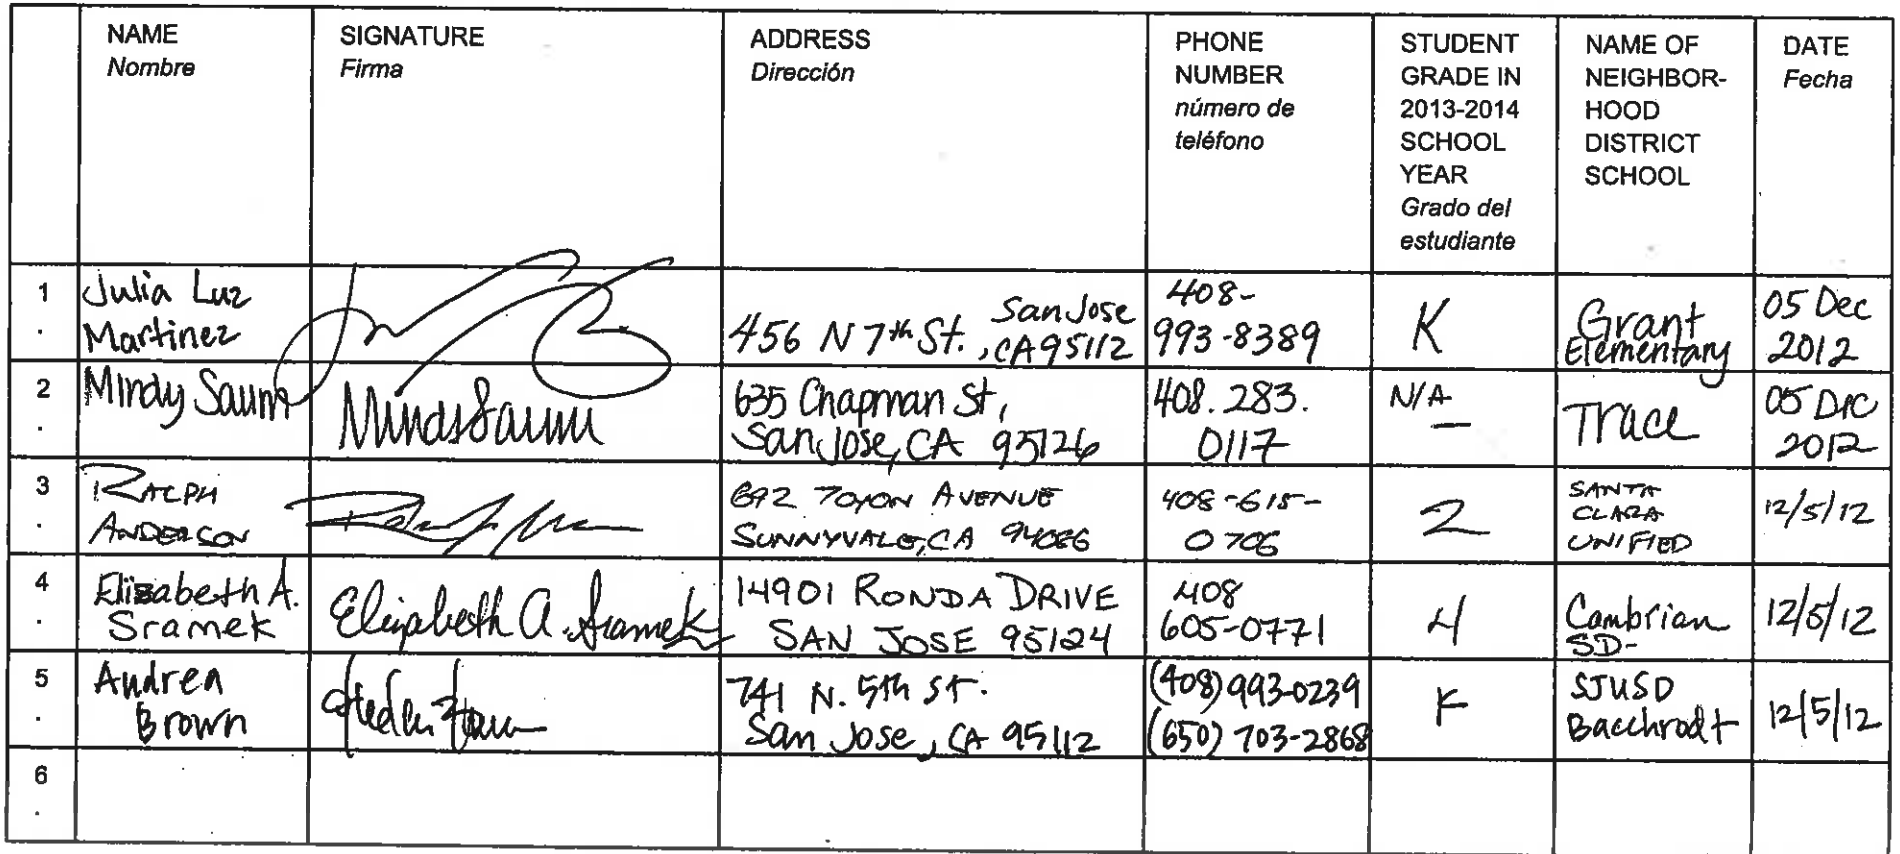 NAME
Nombre
SIGNATURE
Firma
ADDRESS
Dirección
PHONE
NUMBER
número de
teléfono
STUDENT
GRADE IN
2013-2014
SCHOOL
YEAR
Grado del
estudiante
NAME OF
NEIGHBOR-
HOOD
DISTRICT
SCHOOL
DATE
Fecha
1
.
Julia Luz
Martinez
456 N 7th St., San Jose
CA 95112
408-
993-8389
K
Grant
Elementary
05 Dec
2012
2
.
Mindy Saum
Mindy Saum
635 Chapman St,
San Jose, CA 95126
408.283.
0117
N/A
—
Trace
05 Dec
2012
3
.
RALPH
ANDERSON
692 TOYON AVENUE
SUNNYVALE, CA 94086
408-615-
0706
2
SANTA
CLARA
UNIFIED
12/5/12
4
.
Elizabeth A.
Sramek
Elizabeth A. Sramek
14901 RONDA DRIVE
SAN JOSE 95124
408
605-0771
4
Cambrian
SD-
12/5/12
5
.
Andrea
Brown
741 N. 5th St.
San Jose, CA 95112
(408) 993-0239
(650) 703-2868
K
SJUSD
Bacchrodt
12/5/12
6
.